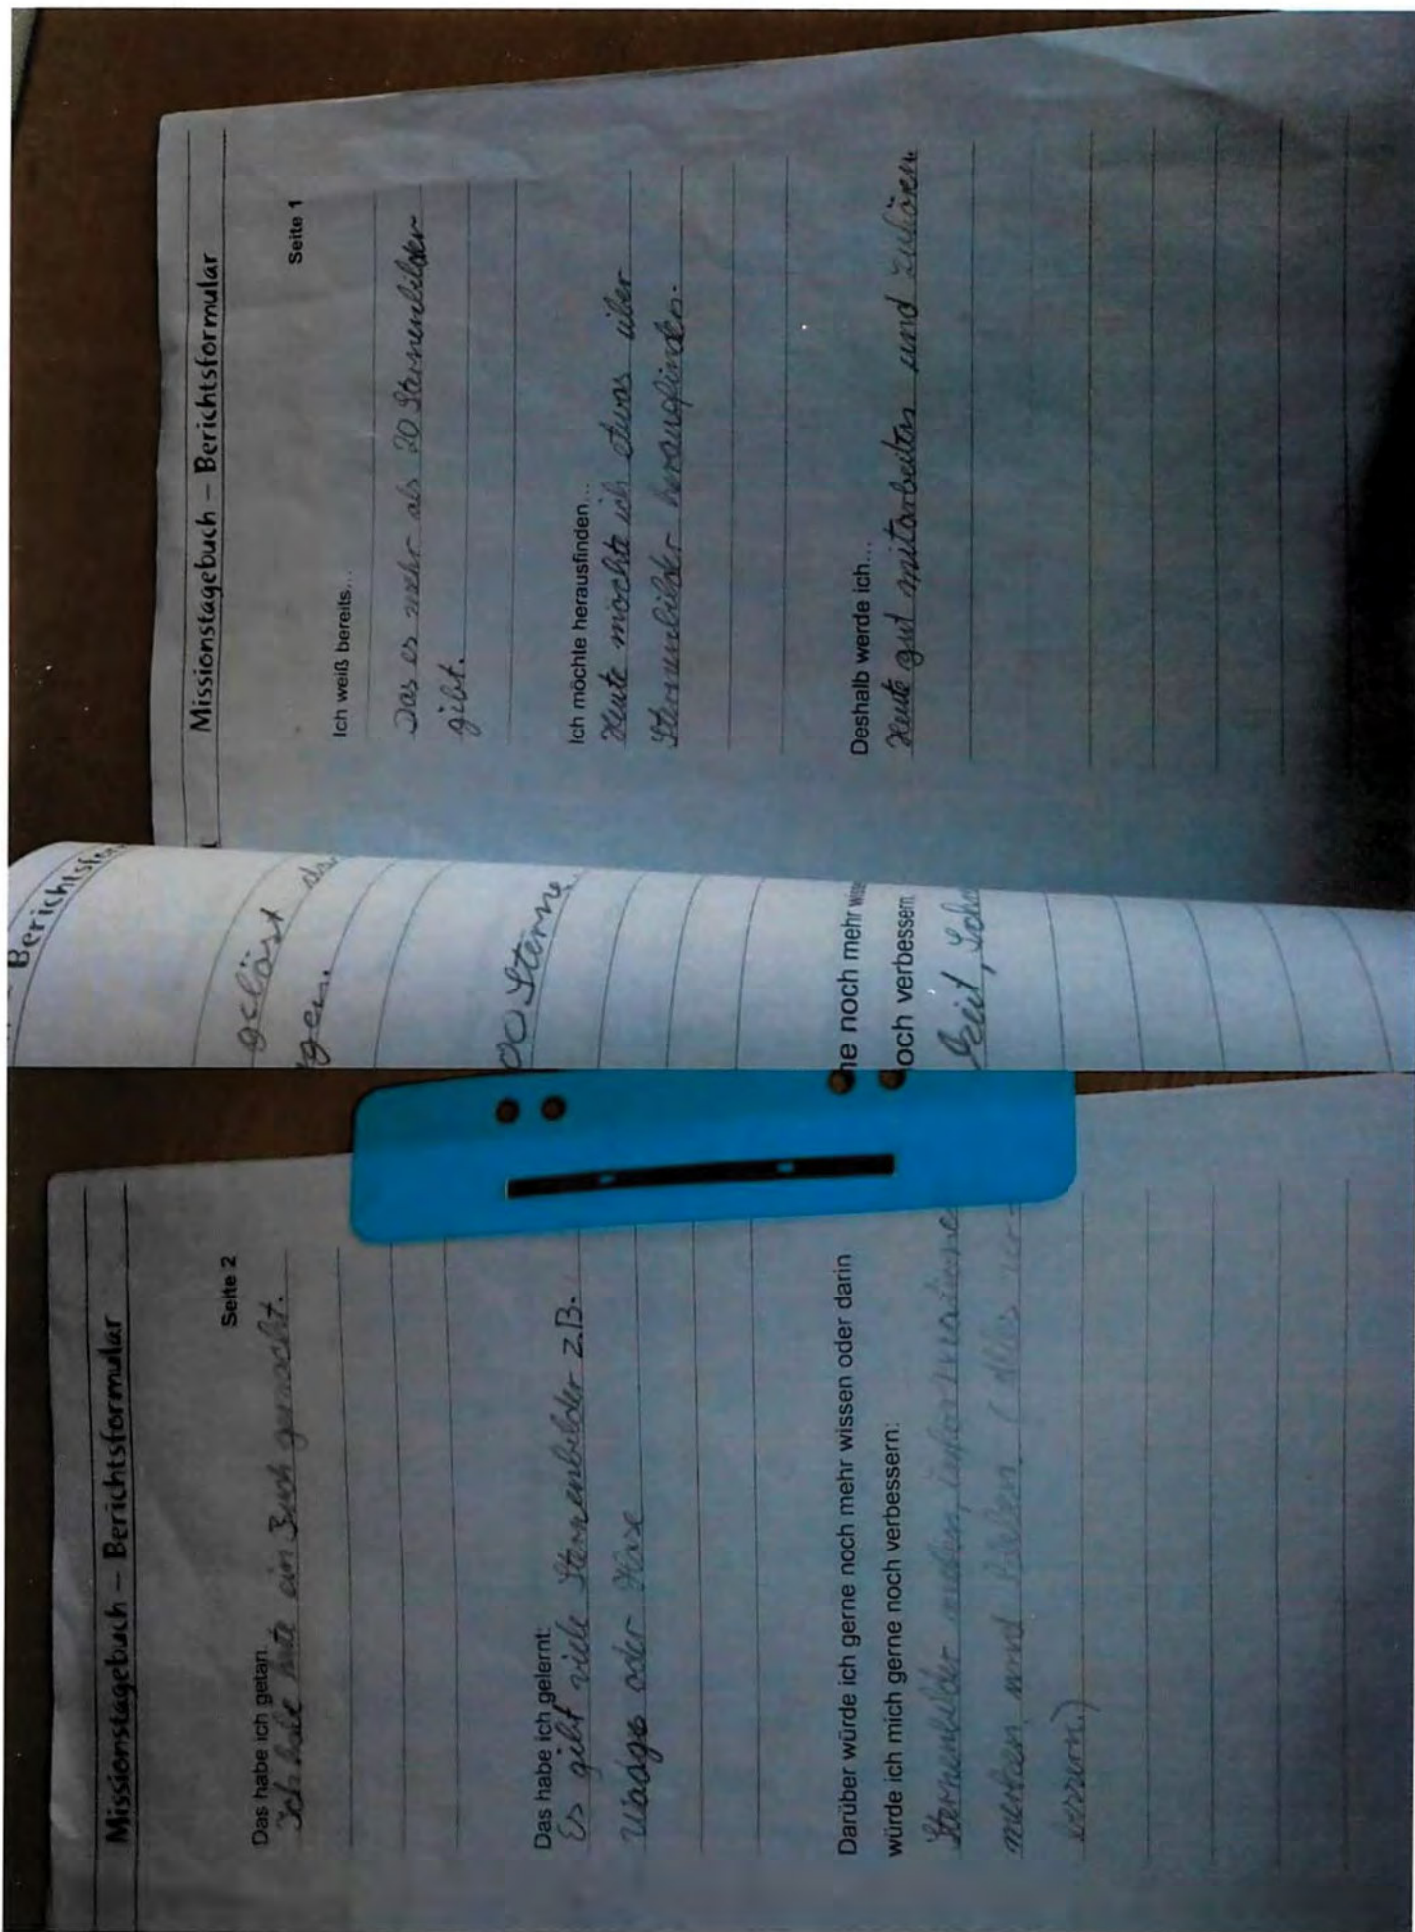 Missionstagebuch – Berichtsformular
Seite 1
Ich weiß bereits...
Das es mehr als 20 Sternenbilder
gibt.
Ich möchte herausfinden...
Heute möchte ich etwas über
Sternenbilder herausfinden.
Deshalb werde ich...
Heute gut mitarbeiten und zuhören.
Berichtsfor
gelöst
gen.
00 Sterne
ne noch mehr wisse
och verbessern
Zeit,
Missionstagebuch – Berichtsformular
Seite 2
Das habe ich getan
Ich habe heute ein Buch gemacht.
Das habe ich gelernt:
Es gibt viele Sternenbilder z.B.
Waage oder Hase
Darüber würde ich gerne noch mehr wissen oder darin
würde ich mich gerne noch verbessern:
Sternenbilder
merken und (alles ver-
bessern.)